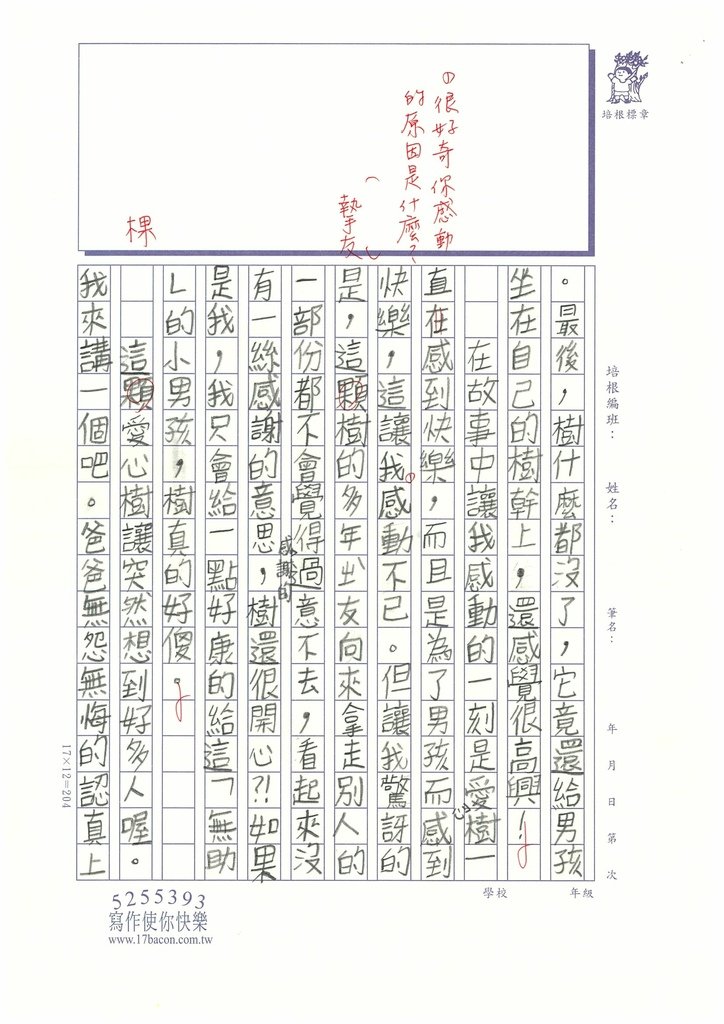 培根標章
①很好奇你感動
的原因是什麼?
摯友
棵
培根編班：
姓名：
筆名：
年 月 日 第 次
。最後，樹什麼都沒了，它竟還給男孩
坐在自己的樹幹上，還感覺很高興！
在故事中讓我感動的一刻是愛樹一
直在感到快樂，而且是為了男孩而感到
快樂，這讓我①感動不已。但讓我驚訝的
是，這顆樹的多年出友向來拿走別人的
一部份都不會覺得過意不去，看起來沒
有一絲感謝的意思，樹還很開心?!如果
感謝的
是我，我只會給一點好康的給這「無助
」的小男孩，樹真的好傻。
這顆愛心樹讓突然想到好多人喔。
我來講一個吧。爸爸無怨無悔的認真上
17×12=204
學校 年級
5255393
寫作使你快樂
www.17bacon.com.tw